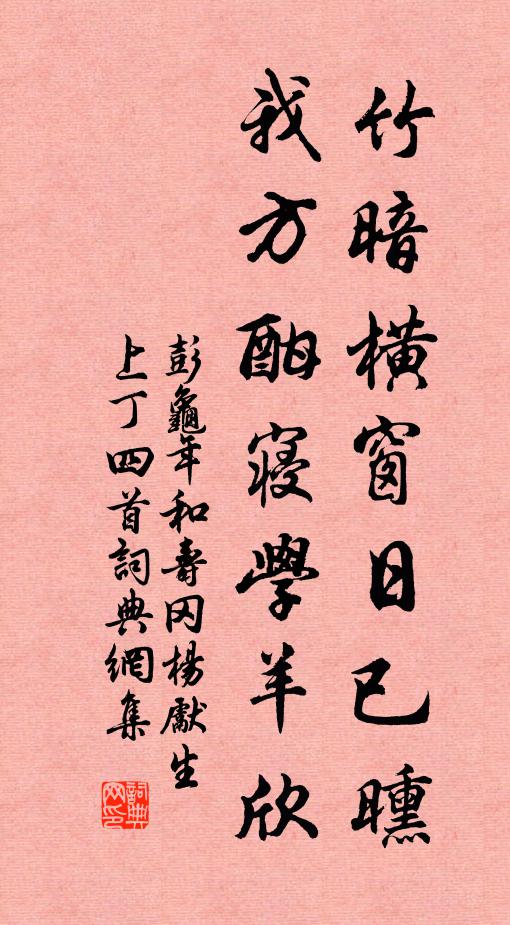 竹暗橫窗日已曛
我方酣寝學羊欣
彭龜年和壽冈楊獻生
上丁四首詞典網集
詞典网印